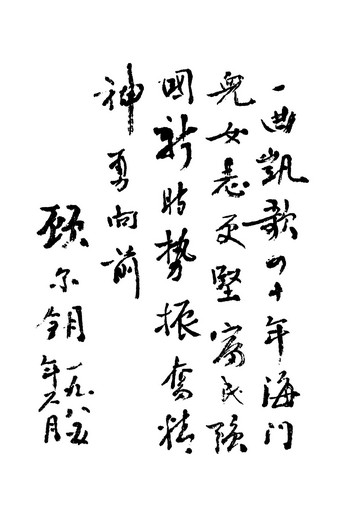 一曲凯歌四十年海门
兒女志更堅富民强
國新时勢振奮精
神勇向前
顾尔钥
一九八五
年六月